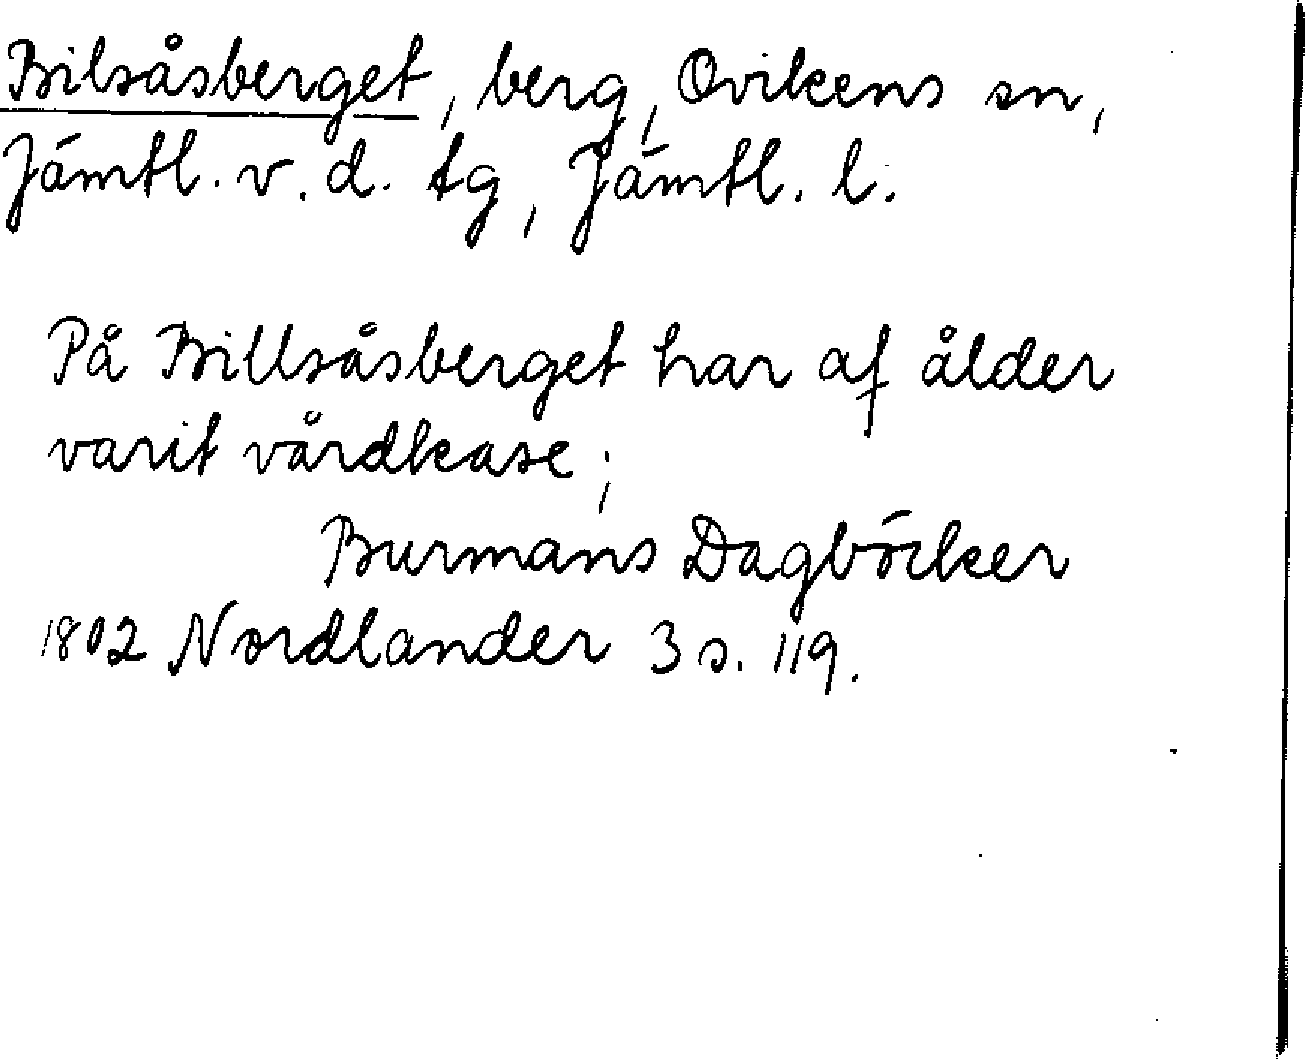 Bilsåsberget, berg, Ovikens sn,
Jämtl. v. d. tg, Jämtl. l.
På Billsåsberget har af ålder
varit vårdkase;
Burmans Dagböcker
1802 Nordlander 3 s. 119.